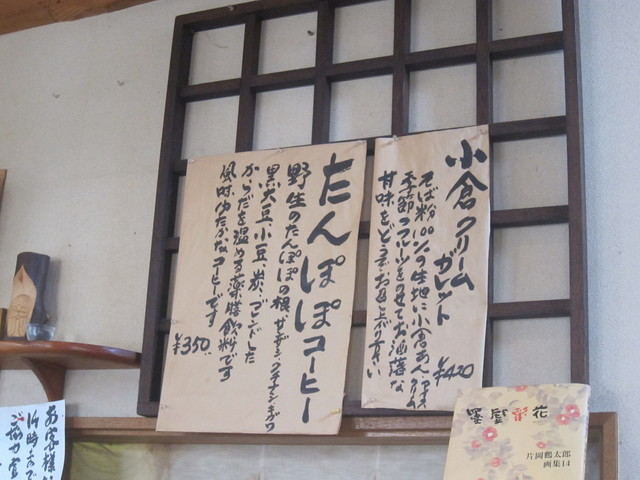 小倉クリーム
ガレット
そば粉100%の生地に小倉あん、アイスクリーム
季節のフルーツをのせてお洒落な
甘味をどうぞお召上がり下さい
¥420
たんぽぽコーヒー
野生のたんぽぽの根、
黒大豆、小豆、炭、ブレンドした
からだを温める薬膳飲料です
風味ゆたかなコーヒーです
¥350
お客様
墨戯彩花
片岡鶴太郎
画集14